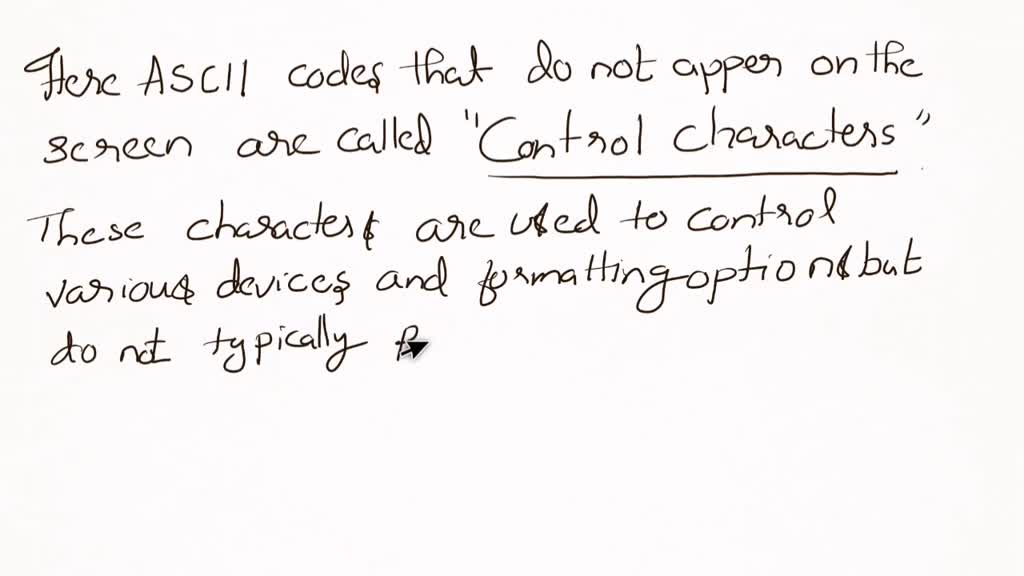 Here ASCII codes that do not apper on the
screen are called "Control characters"
These characters are used to control
various devices and formatting options but
do not typically